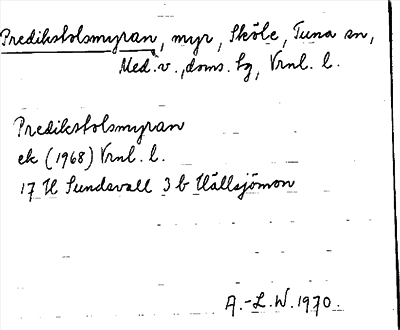 Predikstolsmyran, myr, Sköle, Tuna sn,
Med.v., doms. tg, Vrnl. l.
Predikstolsmyran
ek (1968) Vrnl. l.
17 H Sundsvall 3 b Hällsjömon
A.-L. W. 1970.